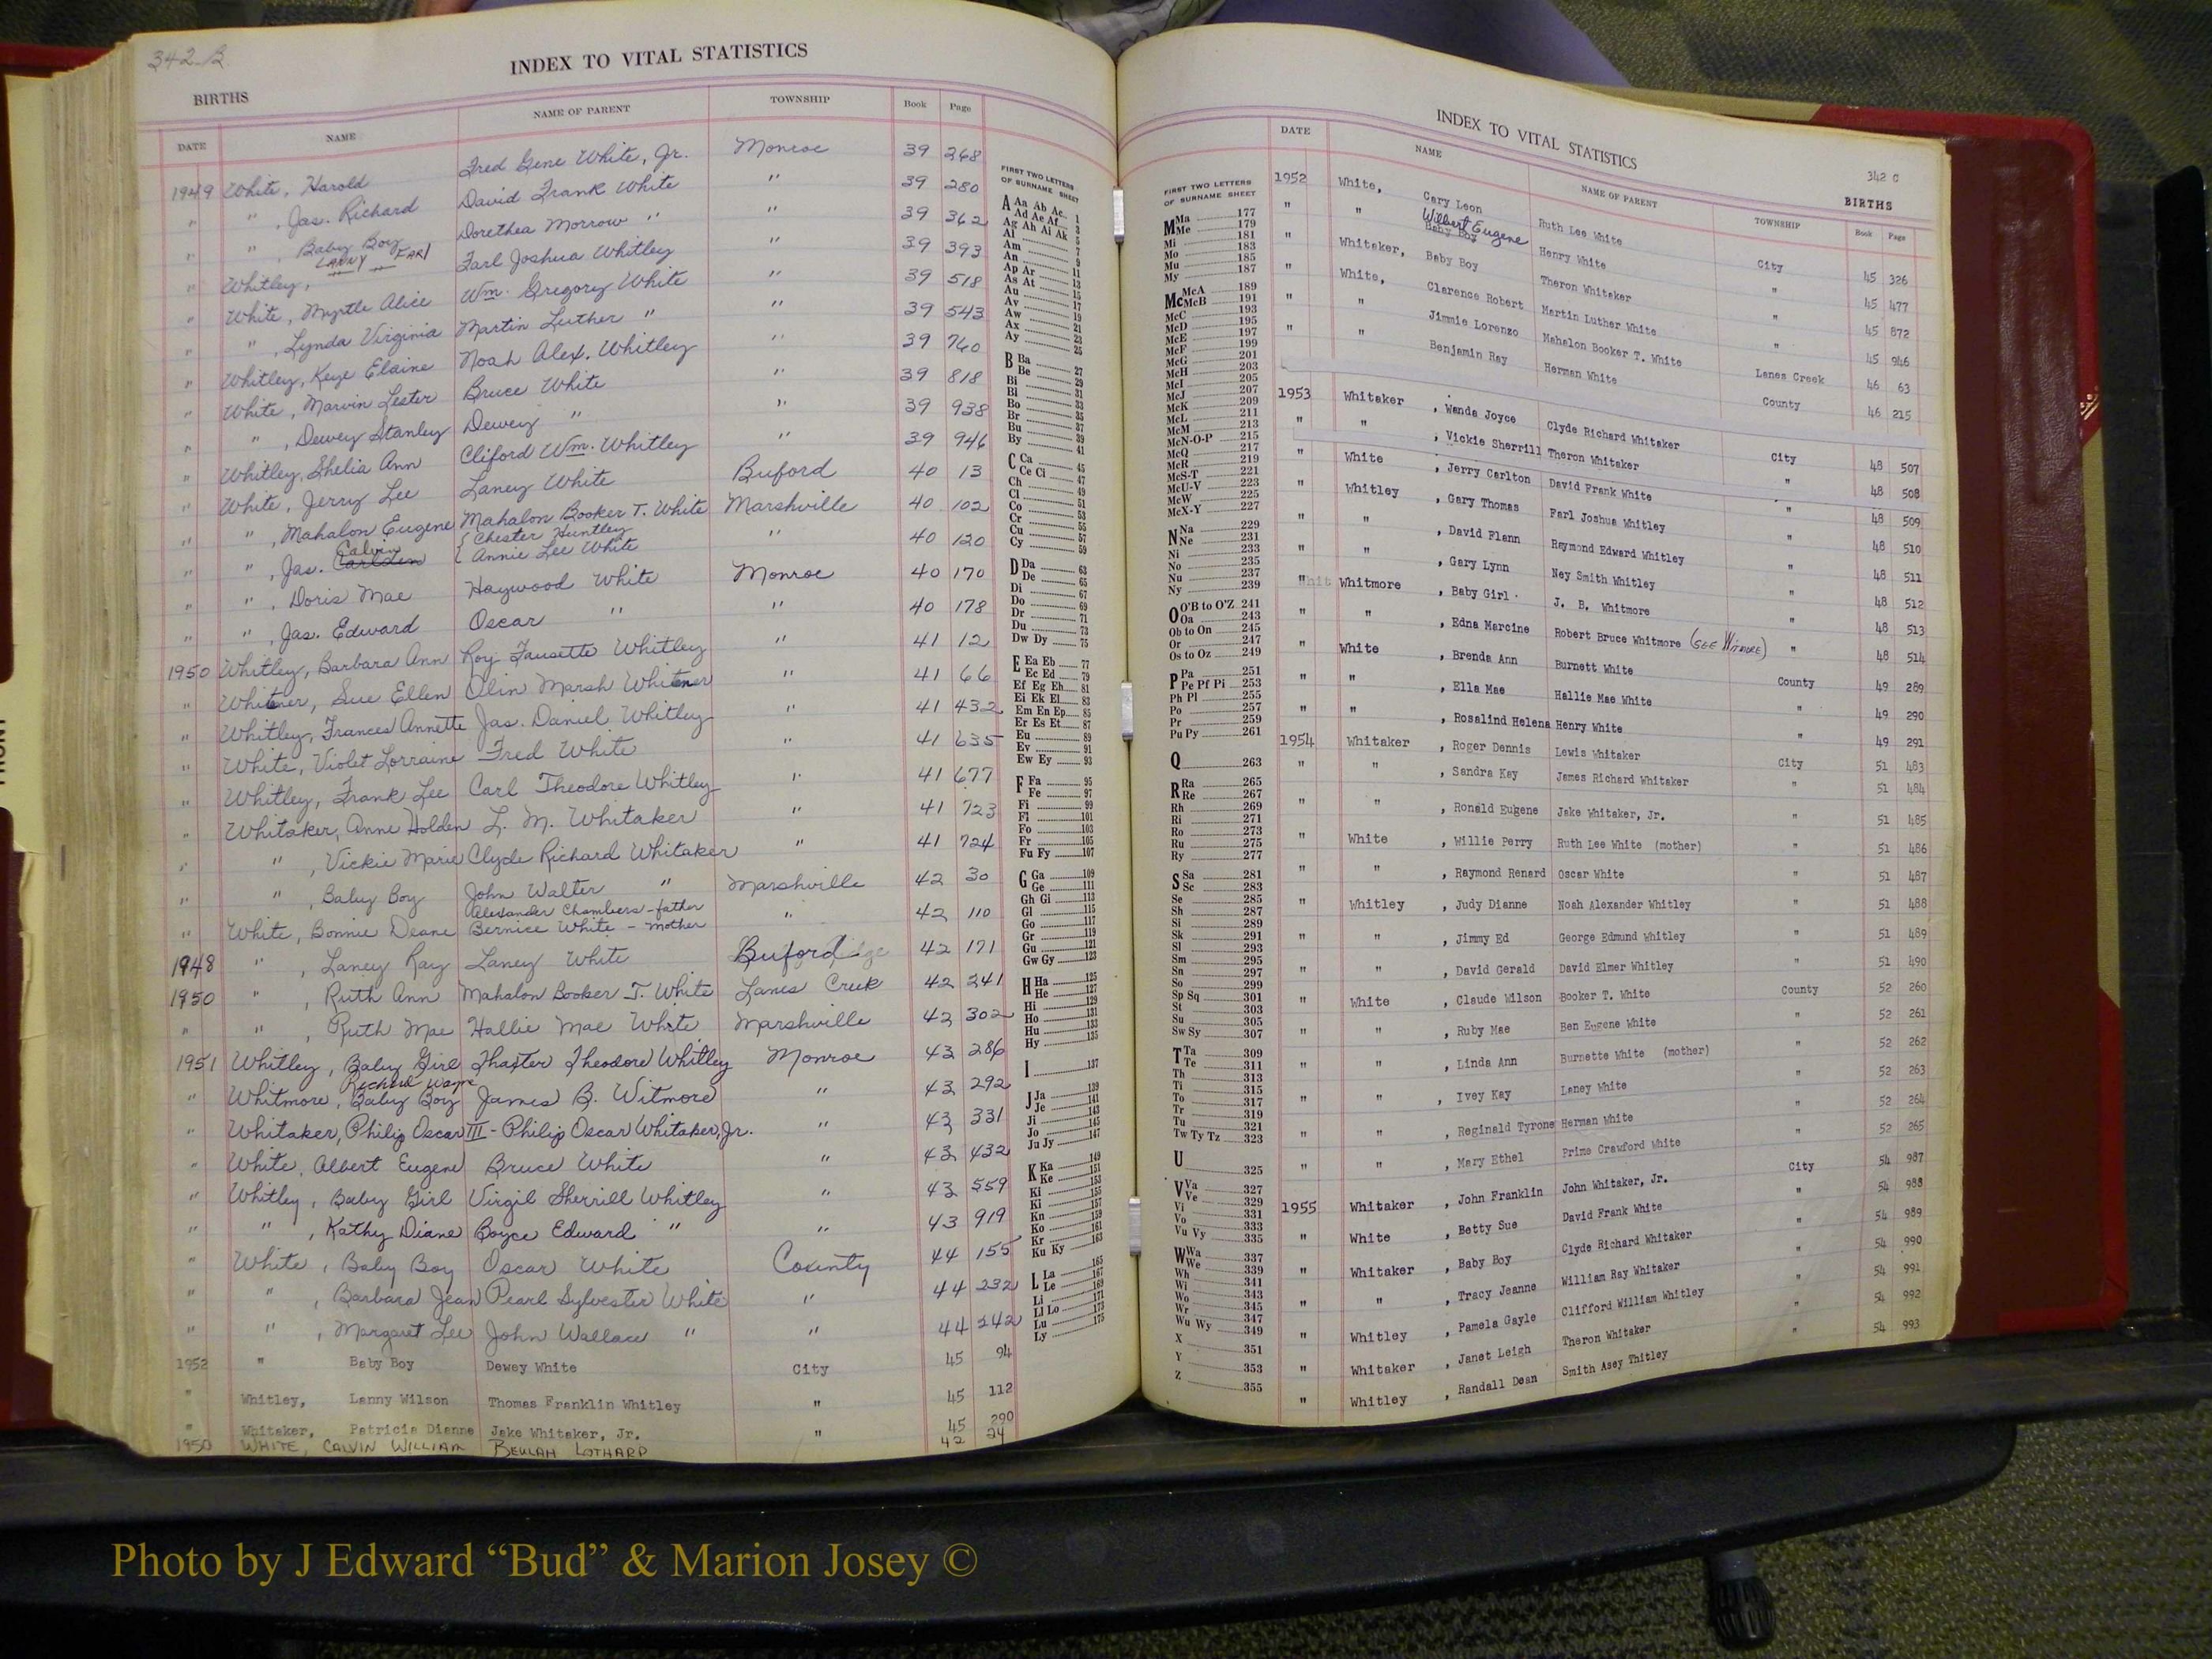 342 B
INDEX TO VITAL STATISTICS
BIRTHS
DATE NAME NAME OF PARENT TOWNSHIP Book Page
1949 White, Harold Fred Gene White, Jr. Monroe 39 268
" " , Jas. Richard David Frank White " 39 280
" " , Baby Boy Dorethea Morrow " " 39 362
" Whitley, LANNY EARL Earl Joshua Whitley " 39 393
" White, Myrtle Alice Wm. Gregory White " 39 518
" " , Lynda Virginia Martin Luther " " 39 543
" Whitley, Keye Elaine Noah Alex. Whitley " 39 760
" White, Marvin Lester Bruce White " 39 818
" " , Dewey Stanley Dewey " " 39 938
" Whitley, Shelia Ann Cliford Wm. Whitley " 39 946
" White, Jerry Lee Laney White Buford 40 13
" " , Mahalon Eugene Mahalon Booker T. White Marshville 40 102
" " , Jas. Calvin Carlden { Chester Huntley Annie Lee White " 40 120
" " , Doris Mae Haywood White Monroe 40 170
" " , Jas. Edward Oscar " " 40 178
1950 Whitley, Barbara Ann Roy Fausette Whitley " 41 12
" Whitener, Sue Ellen Olin Marsh Whitener " 41 66
" Whitley, Frances Annette Jas. Daniel Whitley " 41 432
" White, Violet Lorraine Fred White " 41 635
" Whitley, Frank Lee Carl Theodore Whitley " 41 677
" Whitaker, Anne Holden L. M. Whitaker " 41 723
" " , Vickie Marie Clyde Richard Whitaker " 41 724
" " , Baby Boy John Walter " Marshville 42 30
" White, Bonnie Deane Alexander Chambers - father Bernice White - mother " 42 110
1948 " , Laney Ray Laney White Buford 42 171
1950 " , Ruth Ann Mahalon Booker T. White Lanes Creek 42 241
" " , Ruth Mae Hallie Mae White Marshville 42 302
1951 Whitley, Baby Girl Thaxter Theodore Whitley Monroe 43 286
" Whitmore, Richard Wayne Baby Boy James B. Witmore " 43 292
" Whitaker, Philip Oscar III - Philip Oscar Whitaker, Jr. " 43 331
" White, Albert Eugene Bruce White " 43 432
" Whitley, Baby Girl Virgil Sherrill Whitley " 43 559
" " , Kathy Diane Boyce Edward " " 43 919
" White, Baby Boy Oscar White County 44 155
" " , Barbara Jean Pearl Sylvester White " 44 232
" " , Margaret Lee John Wallace " " 44 242
1952 " Baby Boy Dewey White City 45 94
" Whitley, Lanny Wilson Thomas Franklin Whitley " 45 112
" Whitaker, Patricia Dianne Jake Whitaker, Jr. " 45 290
1950 WHITE, CALVIN WILLIAM BEULAH LOTHARP 42 24
FIRST TWO LETTERS
OF SURNAME SHEET
A Aa Ab Ac 1
Ad Ae Af 3
Ag Ah Ai Ak 5
Al 7
Am 9
An 11
Ap Ar 13
As At 15
Au 17
Av 19
Aw 21
Ax 23
Ay 25
B Ba 27
Be 29
Bi 31
Bl 33
Bo 35
Br 37
Bu 39
By 41
C Ca 45
Ce Ci 47
Ch 49
Cl 51
Co 53
Cr 55
Cu 57
Cy 59
D Da 63
De 65
Di 67
Do 69
Dr 71
Du 73
Dw Dy 75
E Ea Eb 77
Ec Ed 79
Ef Eg Eh 81
Ei Ek El 83
Em En Ep 85
Er Es Et 87
Eu 89
Ev 91
Ew Ey 93
F Fa 95
Fe 97
Fi 99
Fl 101
Fo 103
Fr 105
Fu Fy 107
G Ga 109
Ge 111
Gh Gi 113
Gl 115
Go 117
Gr 119
Gu 121
Gw Gy 123
H Ha 125
He 127
Hi 129
Ho 131
Hu 133
Hy 135
I 137
J Ja 139
Je 141
Ji 143
Jo 145
Ju Jy 147
K Ka 149
Ke 151
Ki 153
Kl 155
Kn 157
Ko 159
Kr 161
Ku Ky 163
L La 165
Le 167
Li 169
Ll Lo 171
Lu 173
Ly 175
INDEX TO VITAL STATISTICS
342 C
BIRTHS
DATE NAME NAME OF PARENT TOWNSHIP Book Page
FIRST TWO LETTERS
OF SURNAME SHEET
M Ma 177
Me 179
Mi 181
Mo 183
Mu 185
My 187
Mc McA 189
McB 191
McC 193
McD 195
McE 197
McF 199
McG 201
McH 203
McI 205
McJ 207
McK 209
McL 211
McM 213
McN-O-P 215
McQ 217
McR 219
McS-T 221
McU-V 223
McW 225
McX-Y 227
N Na 229
Ne 231
Ni 233
No 235
Nu 237
Ny 239
O O'B to O'Z 241
Oa 243
Ob to On 245
Or 247
Os to Oz 249
P Pa 251
Pe Pf Pi 253
Ph Pl 255
Po 257
Pr 259
Pu Py 261
Q 263
R Ra 265
Re 267
Rh 269
Ri 271
Ro 273
Ru 275
Ry 277
S Sa 281
Sc 283
Se 285
Sh 287
Si 289
Sk 291
Sl 293
Sm 295
Sn 297
So 299
Sp Sq 301
St 303
Su 305
Sw Sy 307
T Ta 309
Te 311
Th 313
Ti 315
To 317
Tr 319
Tu 321
Tw Ty Tz 323
U 325
V Va 327
Ve 329
Vi 331
Vo 333
Vu Vy 335
W Wa 337
We 339
Wh 341
Wi 343
Wo 345
Wr 347
Wu Wy 349
X 351
Y 353
Z 355
1952 White, Cary Leon Ruth Lee White City 45 326
" " Wilbert Eugene Baby Boy Henry White " 45 477
" Whitaker, Baby Boy Theron Whitaker " 45 872
" White, Clarence Robert Martin Luther White " 45 946
" " Jimmie Lorenzo Mahalon Booker T. White Lanes Creek 46 63
" " Benjamin Ray Herman White County 46 215
1953 Whitaker , Wanda Joyce Clyde Richard Whitaker City 48 507
" " , Vickie Sherrill Theron Whitaker " 48 508
" White , Jerry Carlton David Frank White " 48 509
" Whitley , Gary Thomas Earl Joshua Whitley " 48 510
" " , David Flann Raymond Edward Whitley " 48 511
" " , Gary Lynn Ney Smith Whitley " 48 512
" Whitmore , Baby Girl J. B. Whitmore " 48 513
" " , Edna Marcine Robert Bruce Whitmore (SEE WITMORE) " 48 514
" White , Brenda Ann Burnett White County 49 289
" " , Ella Mae Hallie Mae White " 49 290
" " , Rosalind Helena Henry White " 49 291
1954 Whitaker , Roger Dennis Lewis Whitaker City 51 483
" " , Sandra Kay James Richard Whitaker " 51 484
" " , Ronald Eugene Jake Whitaker, Jr. " 51 485
" White , Willie Perry Ruth Lee White (mother) " 51 486
" " , Raymond Renard Oscar White " 51 487
" Whitley , Judy Dianne Noah Alexander Whitley " 51 488
" " , Jimmy Ed George Edmund Whitley " 51 489
" " , David Gerald David Elmer Whitley " 51 490
" White , Claude Wilson Booker T. White County 52 260
" " , Ruby Mae Ben Eugene White " 52 261
" " , Linda Ann Burnette White (mother) " 52 262
" " , Ivey Kay Laney White " 52 263
" " , Reginald Tyrone Herman White " 52 264
" " , Mary Ethel Prime Crawford White " 52 265
1955 Whitaker , John Franklin John Whitaker, Jr. City 54 987
" White , Betty Sue David Frank White " 54 988
" Whitaker , Baby Boy Clyde Richard Whitaker " 54 989
" " , Tracy Jeanne William Ray Whitaker " 54 990
" Whitley , Pamela Gayle Clifford William Whitley " 54 991
" Whitaker , Janet Leigh Theron Whitaker " 54 992
" Whitley , Randall Dean Smith Asey Thitley " 54 993
Photo by J Edward “Bud” & Marion Josey ©